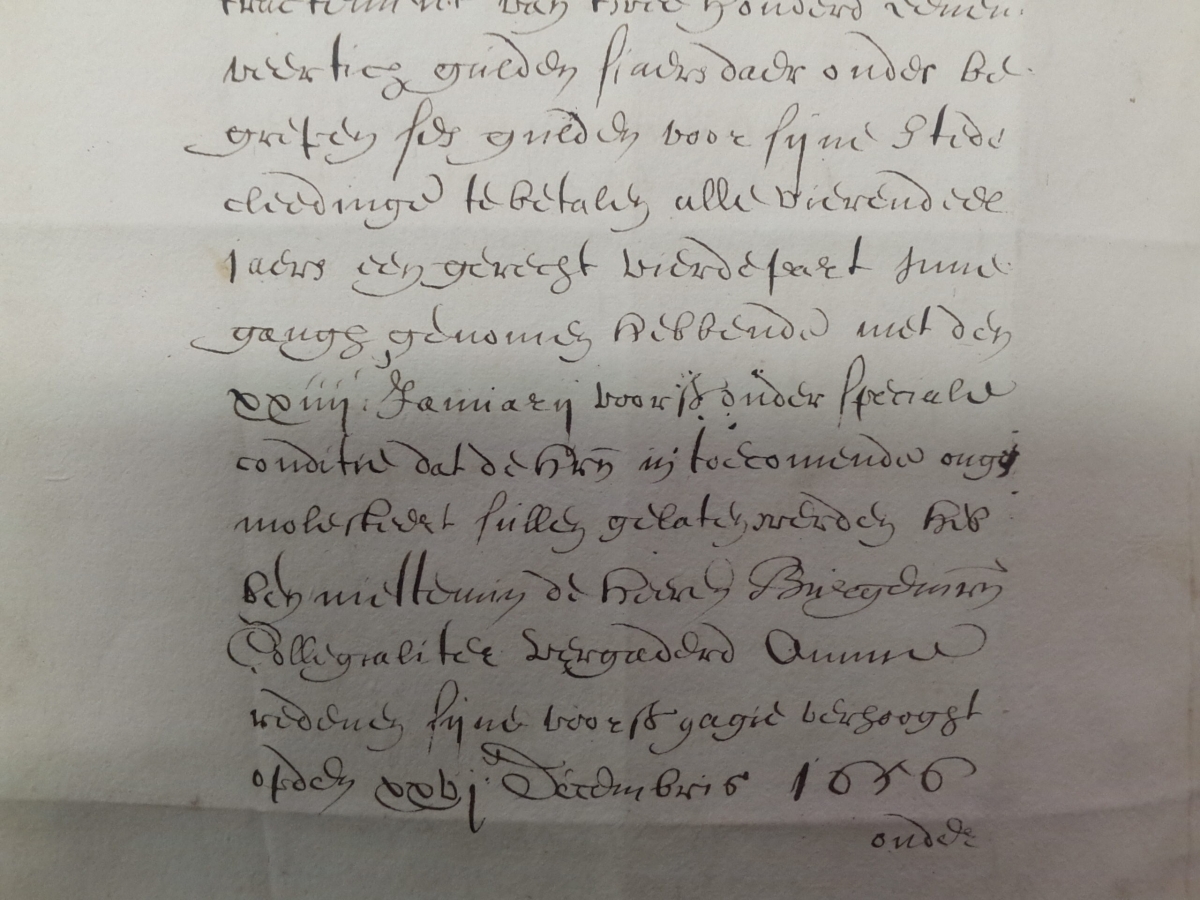 tractement van twee honderd eenen
veertich gulden siaers daer onder be
grepen ses gulden voor sijne Stede
cleedinge te betalen alle vierendeel
Jaers een gerecht vierdepart
gangh genomen hebbende met den
xxiiij Januarij voorss onder speciale
conditie dat de Hrn in toecomende onge
molesteert sullen gelaten werden Heb
ben niettemin de Heeren Burgemrn
Collegialiter vergaderd Omme
redenen sijne voorss gagie verhooght
opden xxvj Decembris 1656
onder